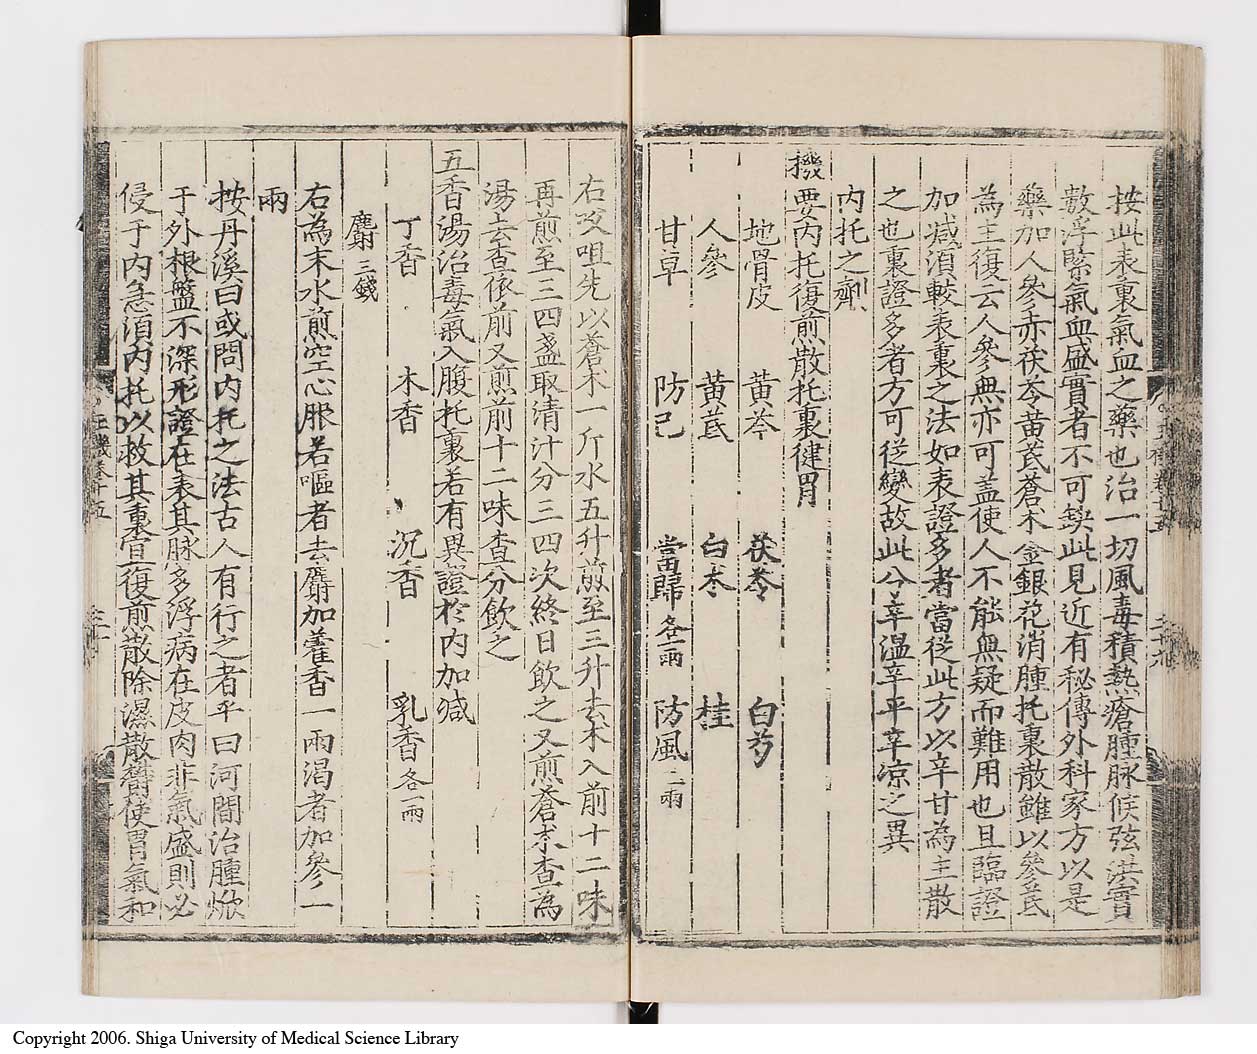 按此表裏氣血之藥也治一切風毒積熱瘡腫脉候弦洪實
數浮緊氣血盛實者不可缺此見近有秘傳外科家方以是
藥加人參赤茯苓黄芪蒼朮金銀花消腫托裏散雖以參芪
為主復云人參無亦可盖使人不能無疑而難用也且臨證
加减湏較表裏之法如表證多者當從此方以辛甘為主散
之也裏證多者方可從變故此分辛温辛平辛凉之異
内托之劑
機要内托復煎散托裏徤胃
地骨皮 黄芩 茯苓 白芍
人參 黄芪 白朮 桂
甘草 防己 當歸各一兩 防風二兩
右㕮咀先以蒼朮一斤水五升煎至三升去朮入前十二味
再煎至三四盞取清汁分三四次終日飲之又煎蒼朮查為
湯去查依前又煎前十二味查分飲之
五香湯治毒氣入腹托裏若有異證於内加减
丁香 木香 沉香 乳香各一兩
麝三錢
右為末水煎空心服若嘔者去麝加藿香一兩渴者加參一
兩
按丹溪曰或問内托之法古人有行之者乎曰河間治腫焮
于外根盤不深形證在表其脉多浮病在皮肉非氣盛則必
侵于内急湏内托以救其裏宜復煎散除濕散欝使胃氣和